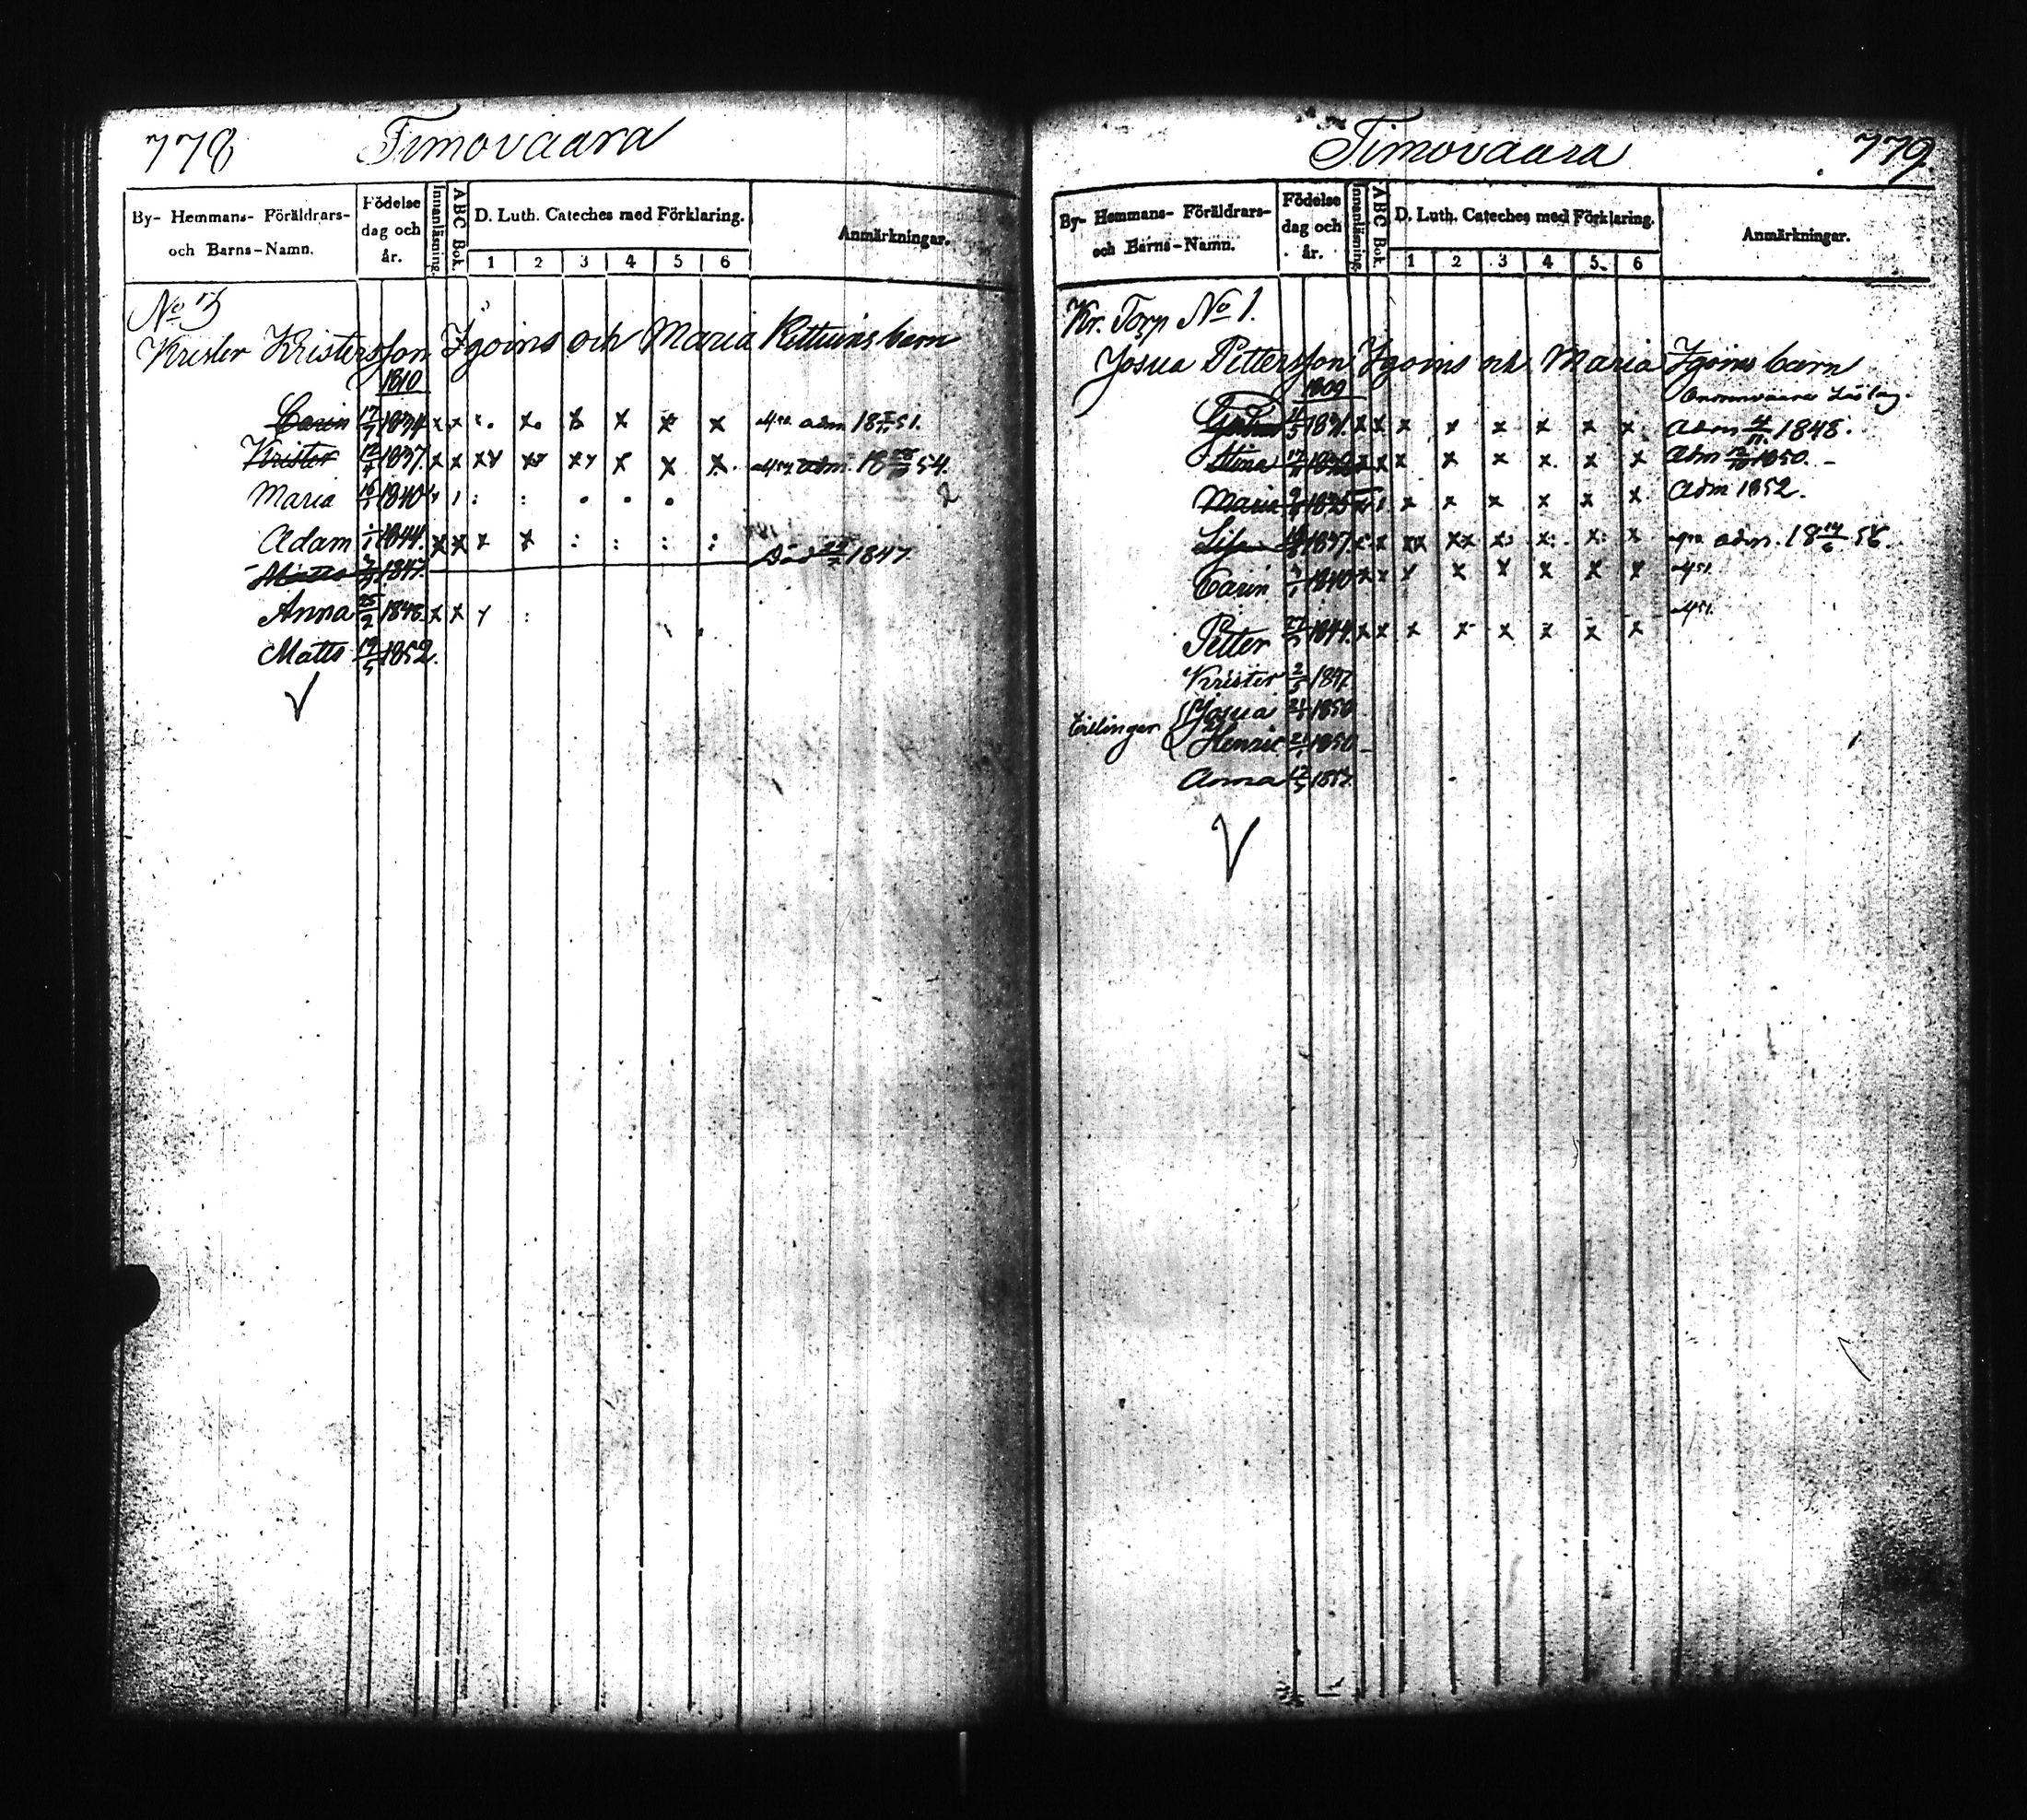 778 Timovaara
By- Hemmans- Föräldrars- och Barns-Namn.
Födelse dag och år.
Innanläsning.
ABC Bok.
D. Luth. Cateches med Förklaring.
1 2 3 4 5 6
Anmärkningar.
No
Krister Kristersson Igoins och Maria Rettuins barn
1810
Carin 1834 x x x x x x adm 18 51.
Krister 12/7 1837. x x xx x x x x x adm. 18 54.
Maria 1840
Adam 1844. x x x x : : : :
Matts 1847. Död 1847
Anna 25/2 1848 x x
Matts 19/5 1852.
Timovaara 779
By- Hemmans- Föräldrars- och Barns-Namn.
Födelse dag och år.
Innanläsning.
ABC Bok.
D. Luth. Cateches med Förklaring.
1 2 3 4 5 6
Anmärkningar.
Kr. Torp No 1.
Josua Pettersson Igoins och Maria Igoins barn
1809
1831. x x x x x x x x Adm 1848.
Stina x x x x x x x Adm 1850.
Maria 1835 x x x x x x Adm 1852.
Lisa 1837. x xx xx x: x: x: x adm. 18 14/6 56.
Carin 1840 x x x x x x x x
Petter 1844. x x x x x x x x
Krister 2/5 1847
Tvillingar
Josua 21/1 1850
Henric 21/1 1850
Anna 1853.